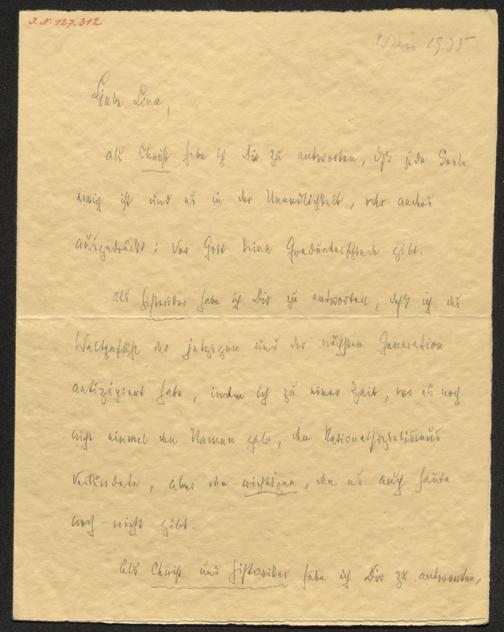 I.N. 127.312
Wien 1935
Liebe Lina,
als Christ habe ich Dir zu antworten, daß jede Seele
ewig ist und es in der Unendlichkeit, oder anders
ausgedrückt: vor Gott keine Gradunterschiede gibt.
als Historiker habe ich Dir zu antworten, daß ich das
Weltgefühl der jetzigen und der nächsten Generation
antizipiert habe, indem ich zu einer Zeit, wo es noch
nicht einmal den Namen gab, den Nationalsozialismus
verkündete, aber den richtigen, den es auch heute
noch nicht gibt.
Als Christ und Historiker habe ich Dir zu antworten,